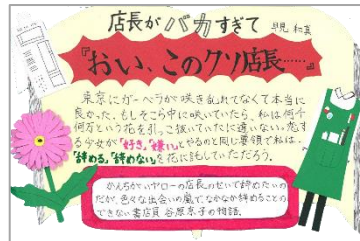 店長がバカすぎて 早見和真
『おい、このクソ店長……』
東京にガーベラが咲き乱れてなくて本当に
良かった。もしそこら中に咲いていたら、私は何千
何万という花を引っこ抜いていたに違いない。恋す
る少女が「好き、嫌い」とやるのと同じ要領で私は、
「辞める」「辞めない」を花に託していただろう。
かんちがいヤローの店長のせいで辞めたいの
だが、色々な出会いの風でなかなか辞めることの
できない書店員 谷原京子の物語。